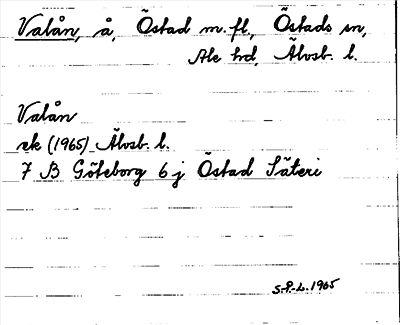 Valån, å, Östad m. fl., Östads sn,
Ale hd, Älvsb. l.
Valån
ek (1965) Älvsb. l.
7 B Göteborg 6 j Östad Säteri
S.P.L. 1965